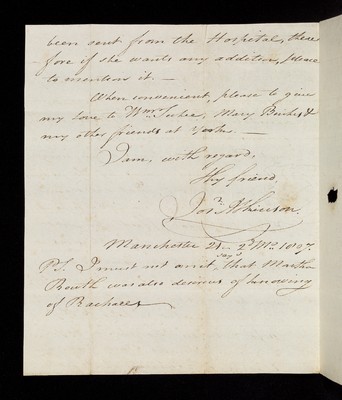 been sent from the Hospital, there
fore if she wants any addition, please
to mention it. —
When convenient, please to give
my Love to Wm. Tuke, Mary Birket &
my other friends at York. —
I am, with regard,
thy friend,
Jos. Atkinson.
Manchester 21 2d Mo. 1807.
P.S. I must not omit, that Martha
Routh was also desirous of knowing
of Rachael